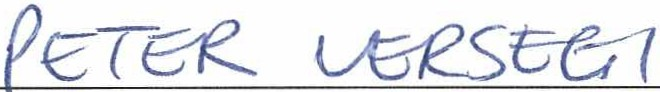 PETER VERSEGI